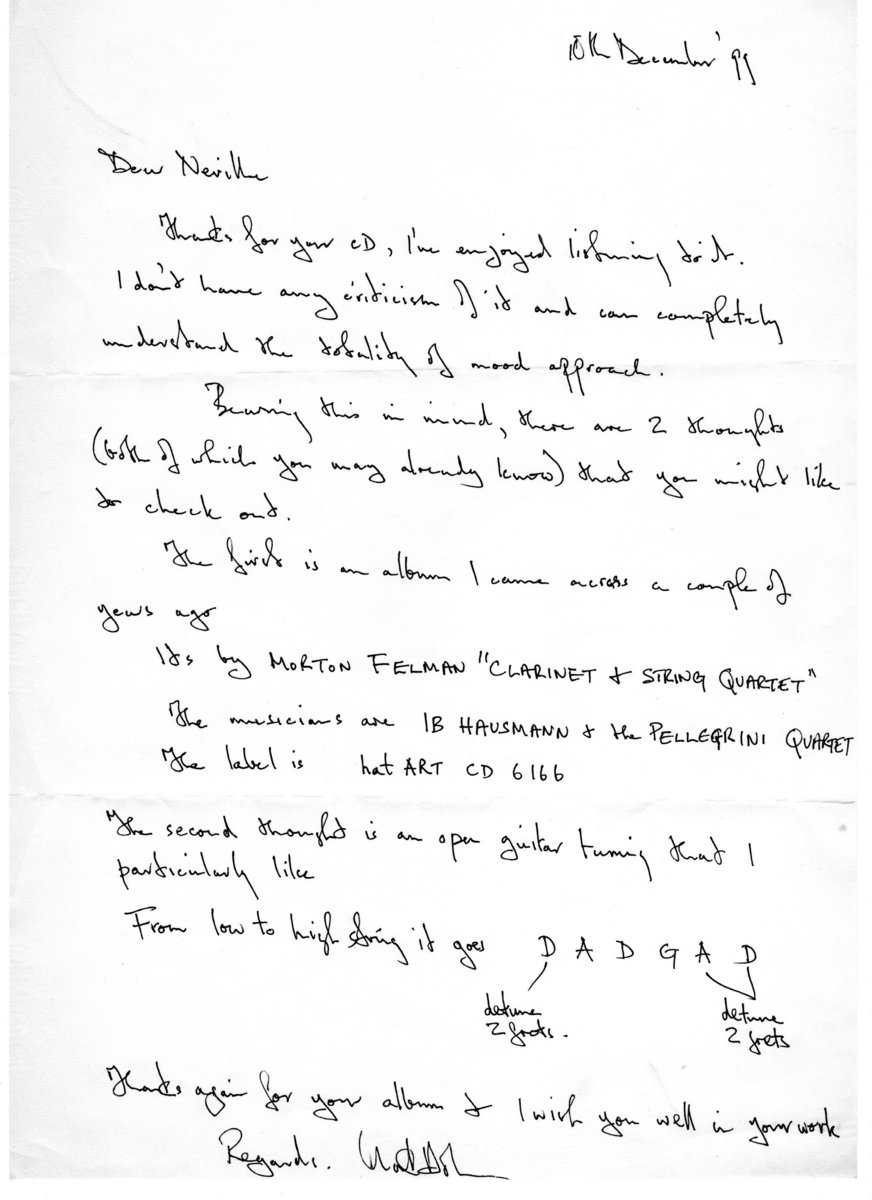 10th December '99
Dear Neville
Thanks for your CD, I've enjoyed listening to it.
I don't have any criticism of it and can completely
understand the totality of mood approach.
Bearing this in mind, there are 2 thoughts
(both of which you may already know) that you might like
to check out.
The first is an album I came across a couple of
years ago
Its by MORTON FELMAN "CLARINET & STRING QUARTET"
The musicians are IB HAUSMANN & the PELLEGRINI QUARTET
The label is hat ART CD 6166
The second thought is an open guitar tuning that I
particularly like
From low to high string it goes D A D G A D
detune
2 frets.
detune
2 frets
Thanks again for your album & I wish you well in your work
Regards.